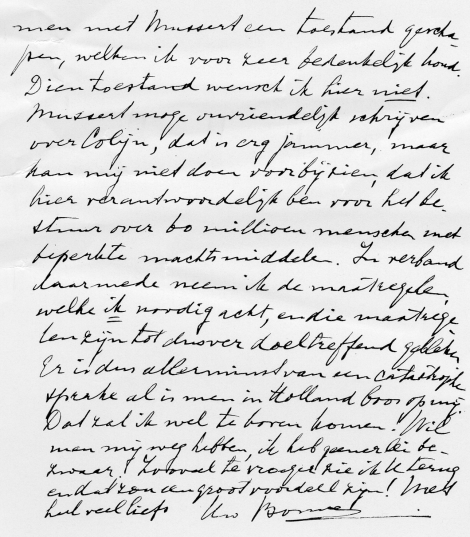 men met Mussert een toestand gescha-
pen, welken ik voor zeer bedenkelijk houd.
Dien toestand wensch ik hier niet.
Mussert moge onvriendelijk schrijven
over Colijn, dat is erg jammer, maar
kan mij niet doen voorbijzien, dat ik
hier verantwoordelijk ben voor het be-
stuur over 60 millioen menschen met
beperkte machtsmiddelen. In verband
daarmede neem ik de maatregelen,
welke ik noodig acht, en die maatrege
len zijn tot dusver doeltreffend gebleken
Er is dus allerminst van een catastrophe
sprake al is men in Holland boos op mij.
Dat zal ik wel te boven komen! Wil
men mij weg hebben, ik heb geenerlei be-
zwaar! Zooveel te vroeger zie ik U terug
en dat zou een groot voordeel zijn! Met
heel veel liefs Uw